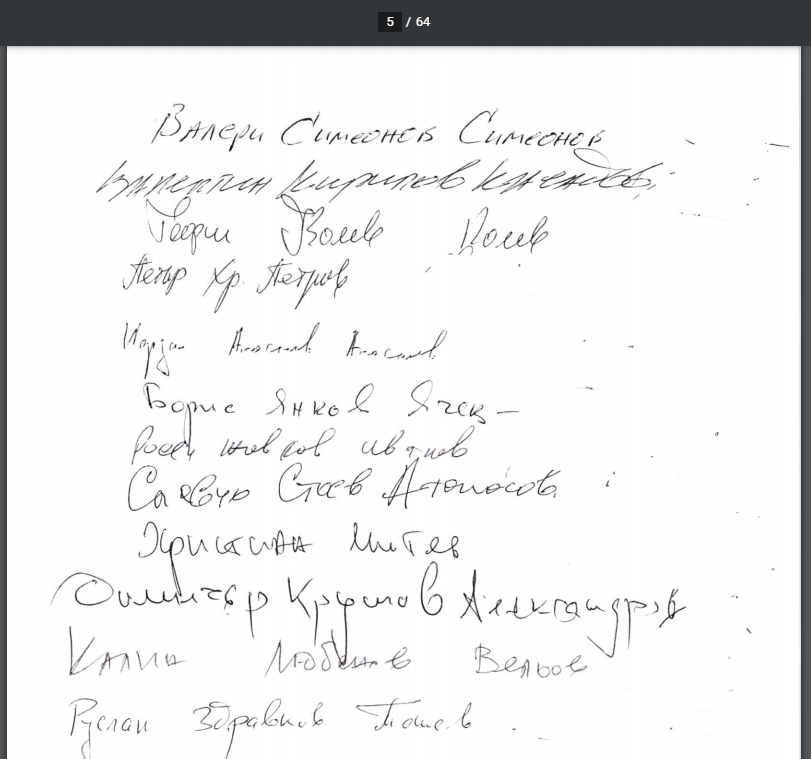 5 / 64
Валери Симеонов Симеонов
Валентин Кирилов Касабов
Георги Колев Колев
Петър Хр. Петров
Йордан Апостолов Апостолов
Борис Янков Ячев
Росен Живков Иванов
Славчо Стоев Атанасов
Християн Митев
Искандър Крумов Александров
Калин Любенов Вельов
Руслан Здравков Тошев